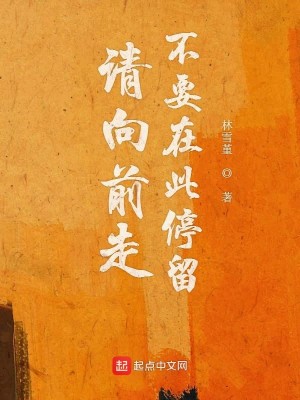 请向前走
不要在此停留
林雪堇 ◎ 著
起点 起点中文网